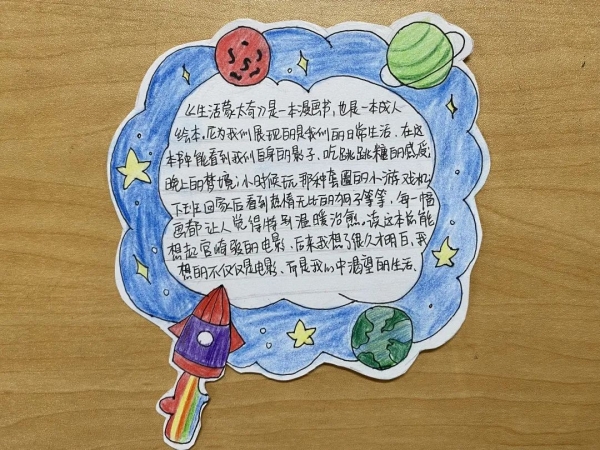 《生活蒙太奇》是一本漫画书,也是一本成人
绘本,因为我们展现的是我们的日常生活,在这
本书能看到我们自身的影子,吃跳跳糖的感受,
晚上的梦境,小时候玩那种套圈的小游戏机,
下班回家后看到热情无比的狗子等等,每一幅
画都让人觉得特别温暖治愈。读这本书能
想起宫崎骏的电影,后来我想了很久才明白,我
想的不仅仅是电影,而是我们中渴望的生活.